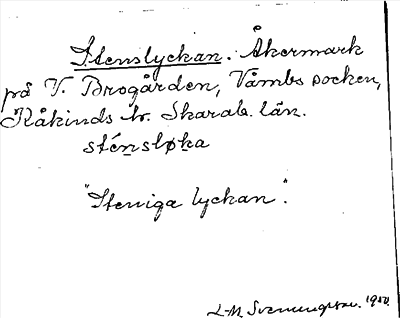 Stenslyckan. Åkermark
på V. Brogården, Våmbs socken,
Kåkinds hr. Skarab. län.
sténsløka
"Steniga lyckan".
L-M. Svenungsson. 1950.